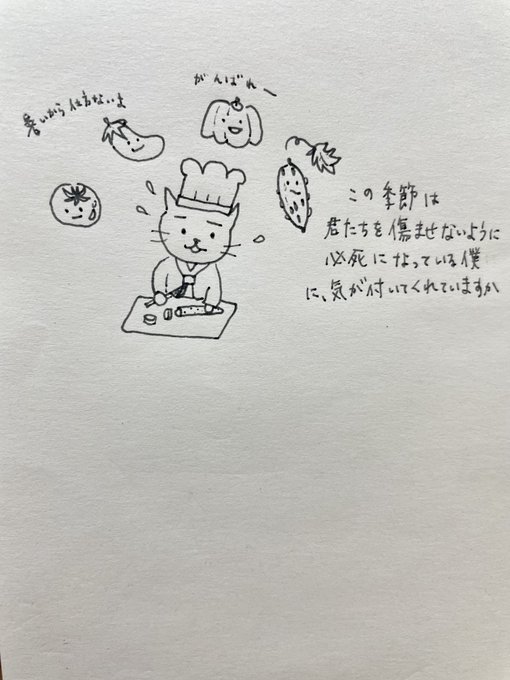 暑いから仕方ないよ
がんばれー
この季節は
君たちを傷ませないように
必死になっている僕
に、気が付いてくれていますか